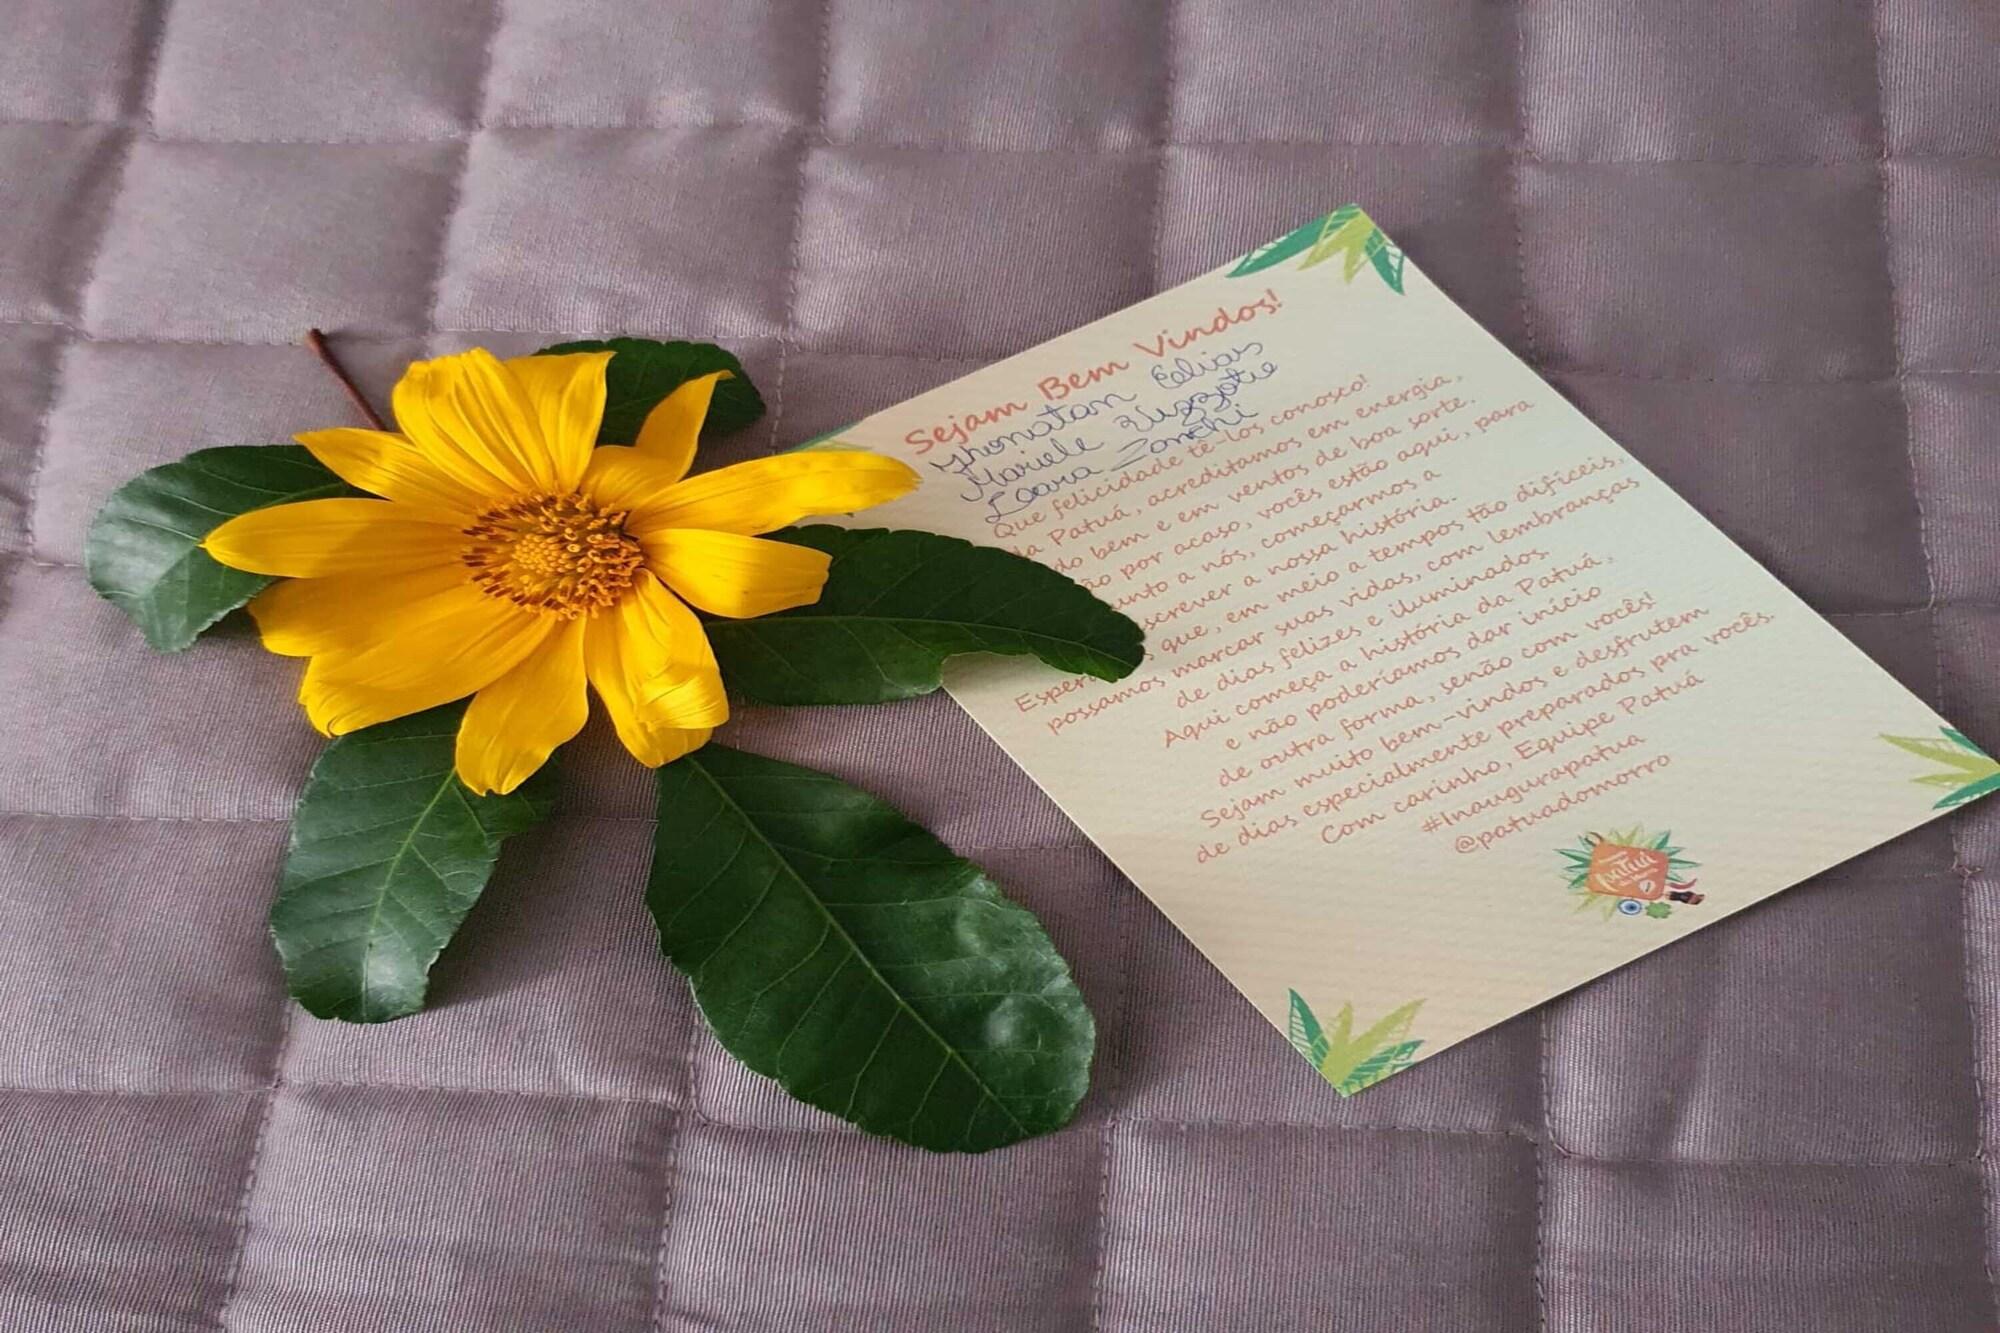 Sejam Bem Vindos!
Jhonatan Elias
Mariele
Lara Zanchi
Que felicidade tê-los conosco!
da Patuá, acreditamos em energia,
do bem e em ventos de boa sorte.
por acaso, vocês estão aqui, para
junto a nós, começarmos a
escrever a nossa história.
que, em meio a tempos tão difíceis,
possamos marcar suas vidas, com lembranças
de dias felizes e iluminados.
Aqui começa a história da Patuá,
e não poderíamos dar início
de outra forma, senão com vocês!
Sejam muito bem-vindos e desfrutem
de dias especialmente preparados pra vocês.
Com carinho, Equipe Patuá
#Inaugurapatua
@patuadomorro
patuá